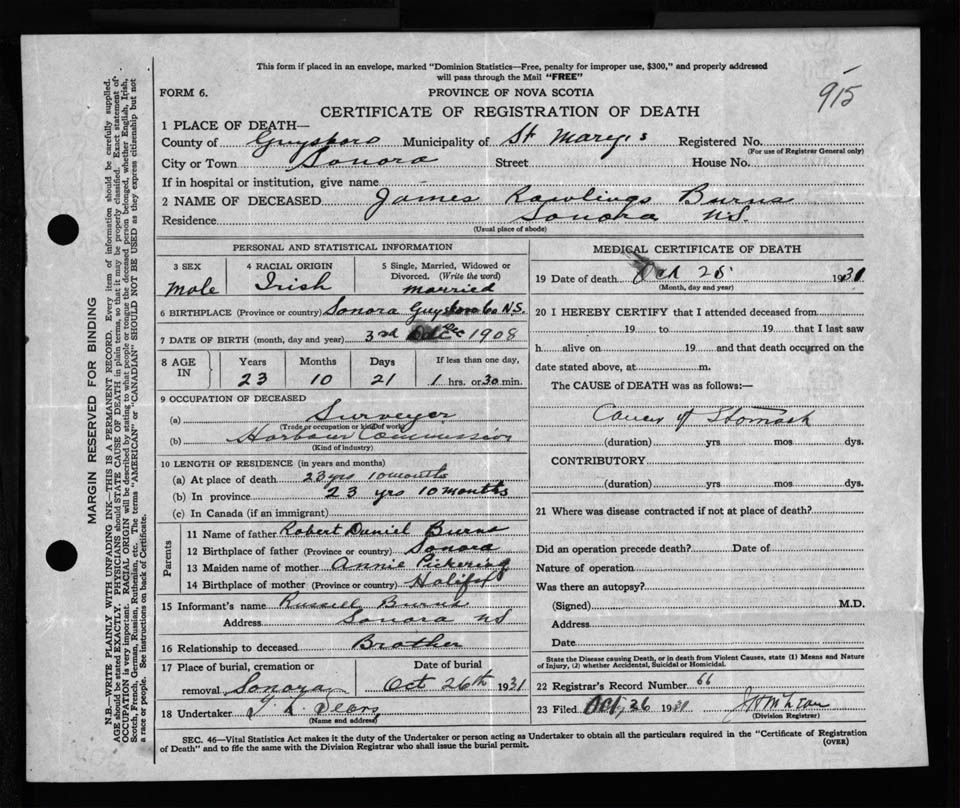 This form if placed in an envelope, marked "Dominion Statistics—Free, penalty for improper use, $300," and properly addressed
will pass through the Mail "FREE"
915
FORM 6.
PROVINCE OF NOVA SCOTIA
CERTIFICATE OF REGISTRATION OF DEATH
1 PLACE OF DEATH—
County of Guysboro Municipality of St Mary's Registered No.
(For use of Registrar General only)
City or Town Sonora Street House No.
If in hospital or institution, give name -
2 NAME OF DECEASED James Rawlings Burns
Residence Sonora NS.
(Usual place of abode)
PERSONAL AND STATISTICAL INFORMATION
3 SEX 4 RACIAL ORIGIN 5 Single, Married, Widowed or Divorced. (Write the word)
Male Irish married
6 BIRTHPLACE (Province or country) Sonora Guysboro Co N.S.
7 DATE OF BIRTH (month, day and year) 3rd Dec 1908
8 AGE IN Years Months Days If less than one day,
23 10 21 1 hrs. or 30 min.
9 OCCUPATION OF DECEASED
(a) Surveyer
(Trade or occupation or kind of work)
(b) Harbour Commission
(Kind of industry)
10 LENGTH OF RESIDENCE (in years and months)
(a) At place of death 23 yrs 10 months
(b) In province 23 yrs 10 months
(c) In Canada (if an immigrant)
Parents
11 Name of father Robert Daniel Burns
12 Birthplace of father (Province or country) Sonora
13 Maiden name of mother Annie Pickering
14 Birthplace of mother (Province or country) Halifax
15 Informant's name Russell Burns
Address Sonora NS
16 Relationship to deceased Brother
17 Place of burial, cremation or removal Sonora Date of burial Oct 26th 1931
18 Undertaker
(Name and address)
MEDICAL CERTIFICATE OF DEATH
19 Date of death Oct 25 1931
(Month, day and year)
20 I HEREBY CERTIFY that I attended deceased from
19 to 19 that I last saw
h alive on 19 and that death occurred on the
date stated above, at m.
The CAUSE of DEATH was as follows:—
Cancer of Stomach
(duration) yrs. mos. dys.
CONTRIBUTORY
(duration) yrs. mos. dys.
21 Where was disease contracted if not at place of death?
Did an operation precede death? Date of
Nature of operation
Was there an autopsy?
(Signed) M.D.
Address
Date
State the Disease causing Death, or in death from Violent Causes, state (1) Means and Nature
of Injury, (2) whether Accidental, Suicidal or Homicidal.
22 Registrar's Record Number 66
23 Filed Oct, 26 1931
(Division Registrar)
SEC. 46—Vital Statistics Act makes it the duty of the Undertaker or person acting as Undertaker to obtain all the particulars required in the "Certificate of Registration
of Death" and to file the same with the Division Registrar who shall issue the burial permit. (OVER)
MARGIN RESERVED FOR BINDING
N.B.—WRITE PLAINLY WITH UNFADING INK—THIS IS A PERMANENT RECORD. Every item of information should be carefully supplied.
AGE should be stated EXACTLY. PHYSICIANS should STATE CAUSE OF DEATH in plain terms, so that it may be properly classified. Exact statement of
OCCUPATION is very important. RACIAL ORIGIN will be described by stating to what people or tongue the deceased person belonged, whether English, Irish,
Scotch, French, German, Russian, Ruthenian, etc. The terms "AMERICAN" or "CANADIAN" SHOULD NOT BE USED as they express citizenship but not
a race or people. See instructions on back of Certificate.